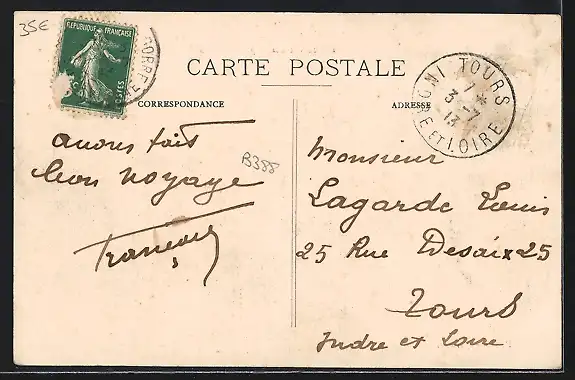 35€
REPUBLIQUE FRANÇAISE
POSTES
CORREZE
CARTE POSTALE
CORRESPONDANCE
ADRESSE
TOURS
7 *
3 -7
13
ET LOIRE
avons fait
bon voyage
B388
Monsieur
Lagarde Louis
25 Rue Desaix 25
Tours
Indre et Loire